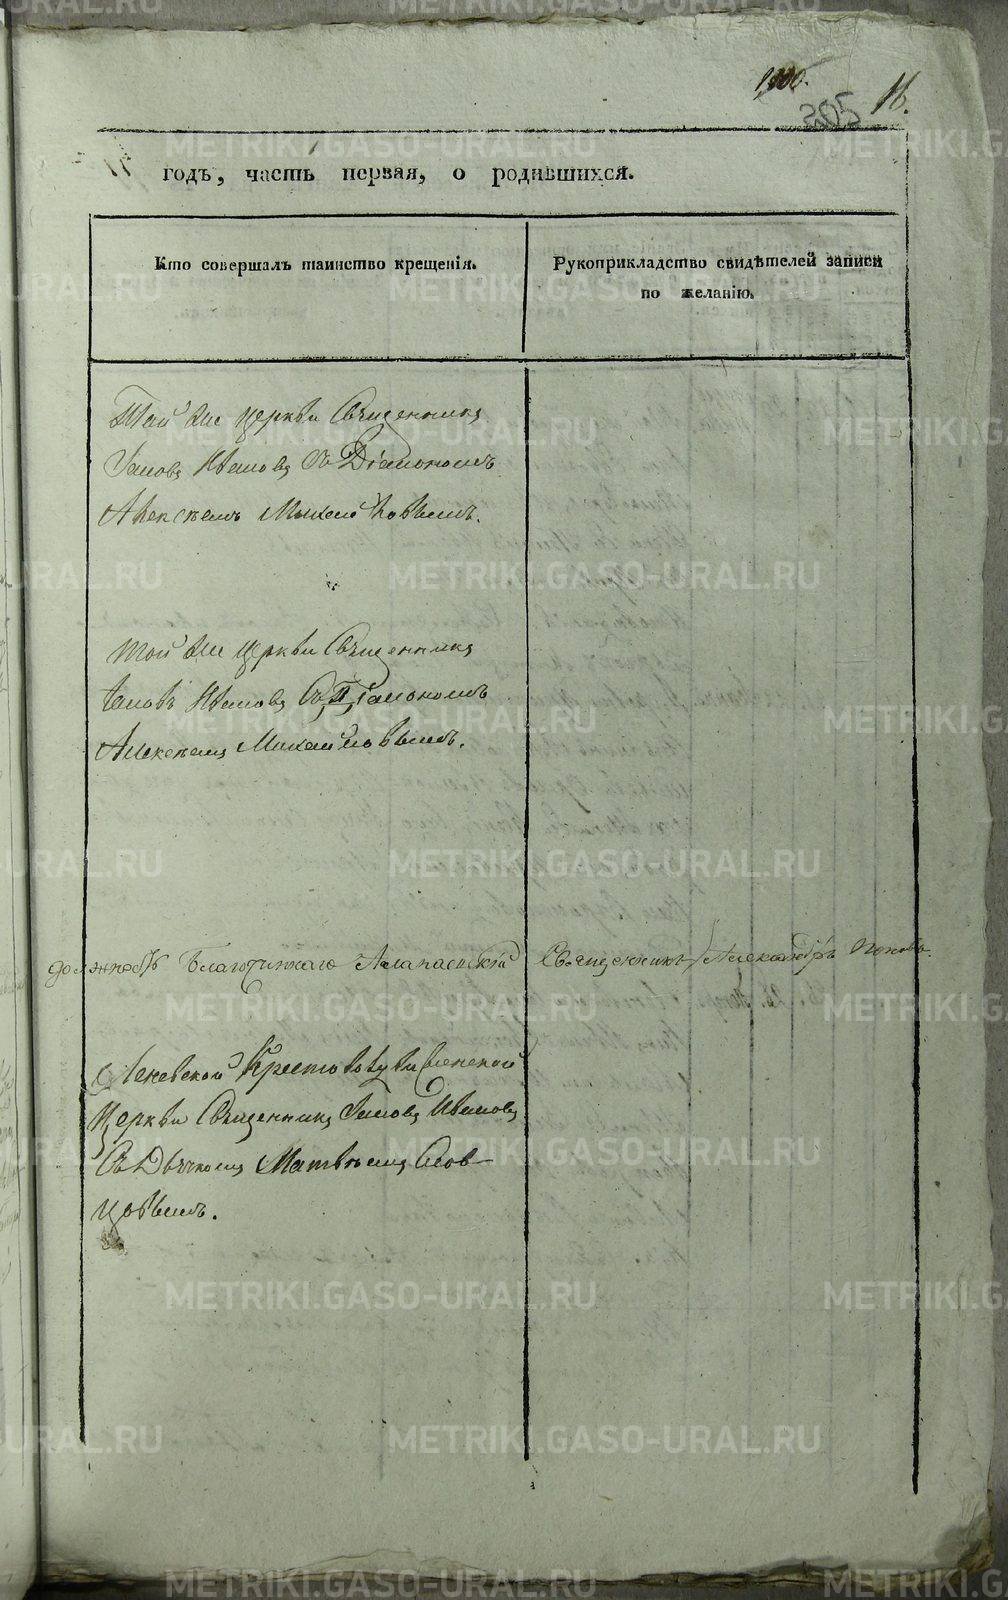 205 16.
годъ, часть первая, о родившихся.
Кто совершалъ таинство крещенія.
Рукоприкладство свидѣтелей записи
по желанію.
Той же церкви Священникъ
Іаковъ Ивановъ съ Діакономъ
Алексѣемъ Михайловымъ.
Той же церкви Священникъ
Іаковъ Ивановъ съ Діакономъ
Алексѣемъ Михайловымъ.
должность Благочиннаго Алапаевскій Священникъ Александръ Поповъ
Крестовоздвиженской
Церкви Священникъ Іаковъ Ивановъ
Съ Дьячкомъ Матвѣемъ Слов-
цовымъ.
METRIKI.GASO-URAL.RU